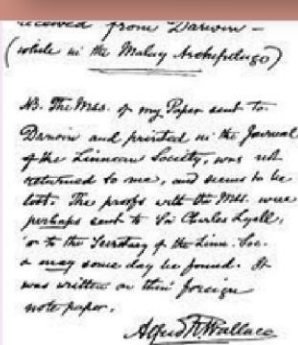 received from Darwin –
(while in the Malay Archipelago)
NB. The Mss. of my Paper sent to
Darwin and printed in the Journal
of the Linnean Society, was not
returned to me, and seems to be
lost. The proofs with the Mss. were
perhaps sent to Sir Charles Lyell,
or to the Secretary of the Linn. Soc.
& may some day be found. It
was written on thin foreign
note paper.
Alfred R. Wallace